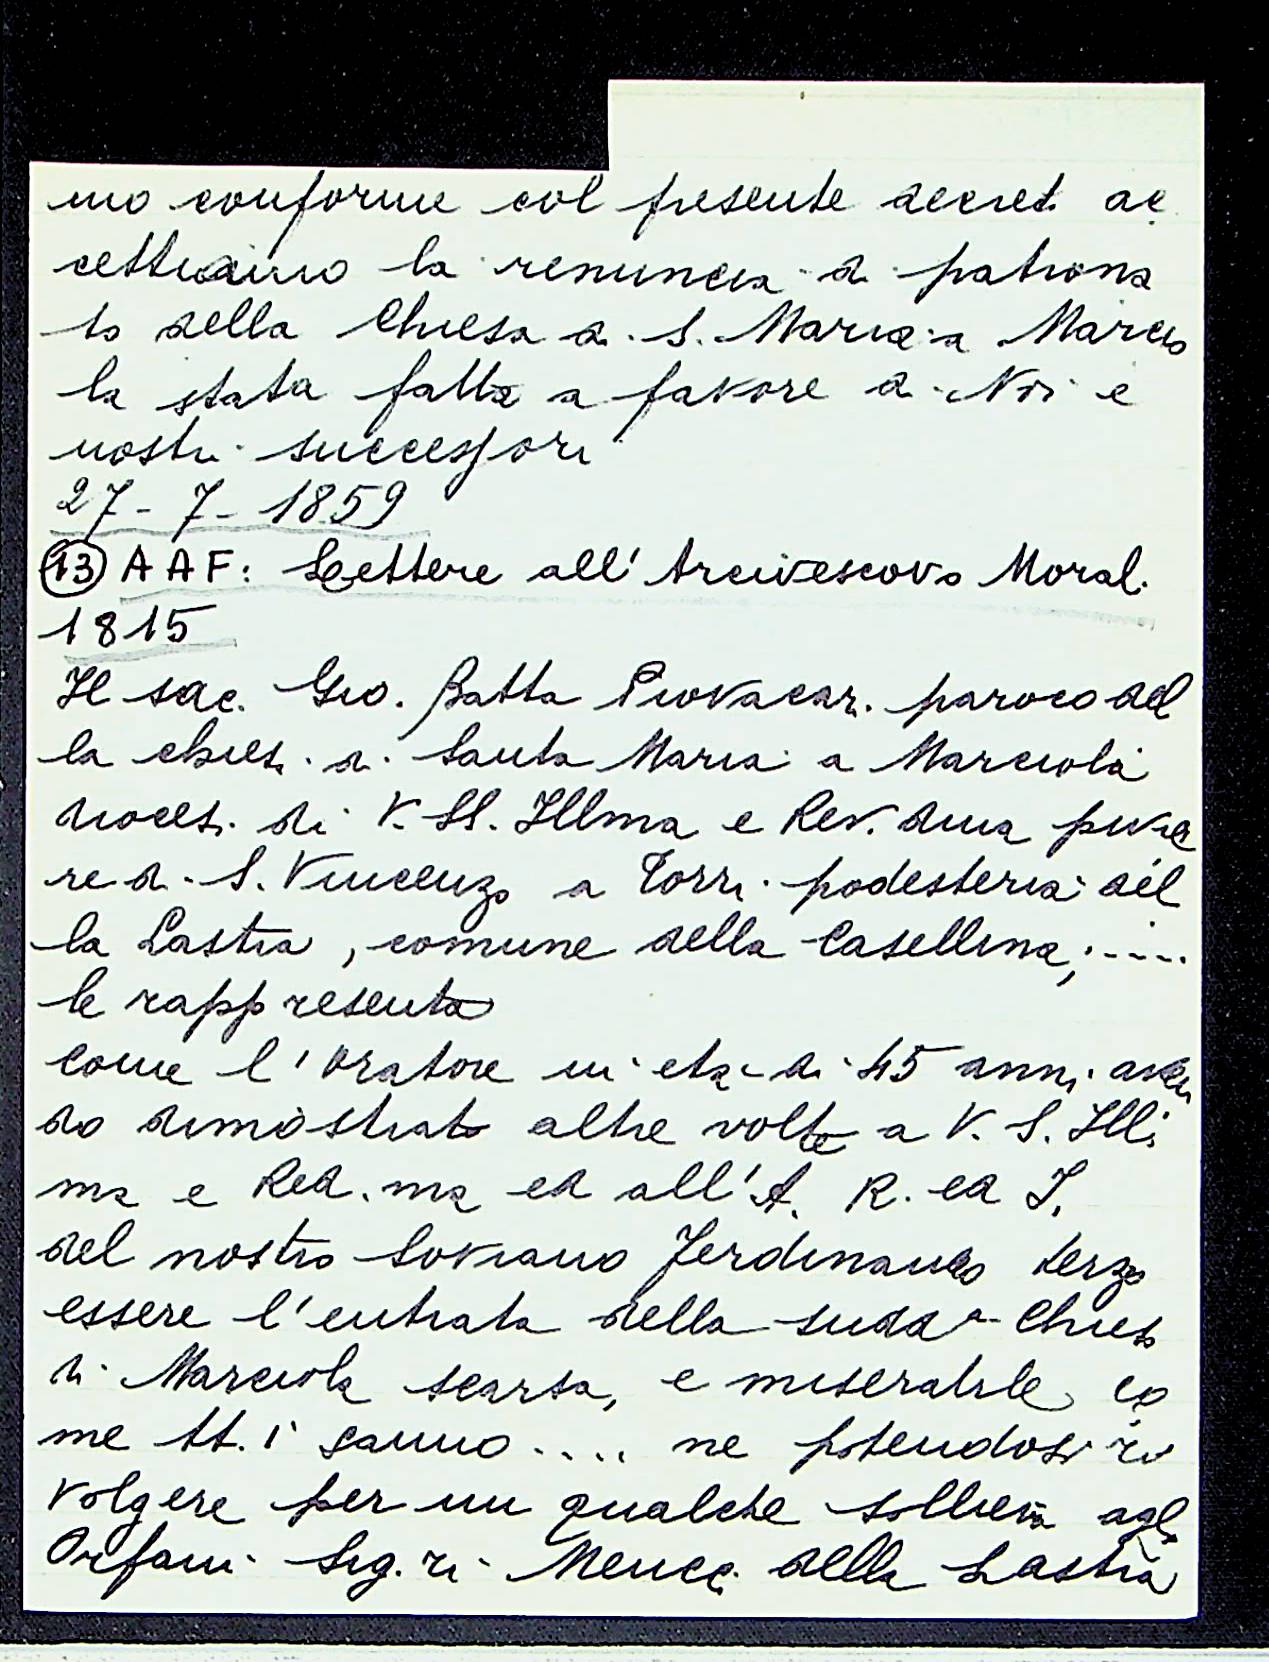 mo conforme col presente decreto ac
cettiamo la renuncia di patrona
to della Chiesa di S. Maria a Marcio
la stata fatta a favore di Noi e
nostri successori
27-7-1859
13 AAF: Lettere all'Arcivescovo Moral.
1815
Il sac. Gio. Batta Piovacari paroco del
la chies. di Santa Maria a Marciola
dioces. di V. SS. Illma e Rev. dma pivie
re di S. Vincenzo a Torri podesteria del
la Lastra, comune della Casellina, ....
le rappresenta
come l'Oratore in età di 45 anni aven
do dimostrato altre volte a V. S. Illi
ma e Red. ma ed all'A. R. ed I.
del nostro Sovrano Ferdinando terzo
essere l'entrata della sudda Chiesa
di Marciola scarsa, e miserabile co
me tt. i sanno .... ne potendosi ri
volgere per un qualche sollievo agli
Orfani Sig.ri Mencci della Lastra